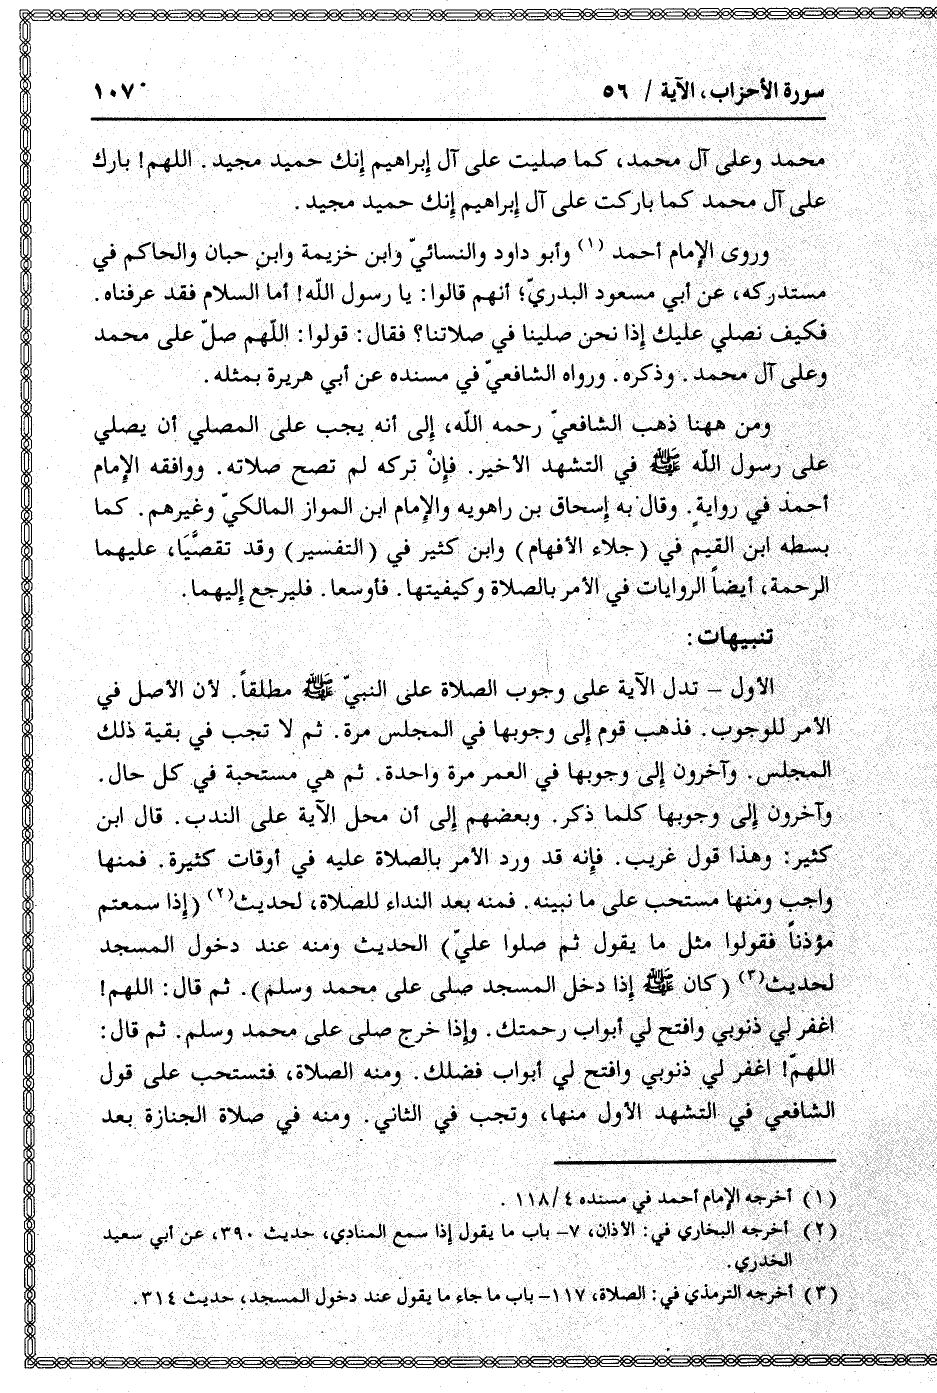 سورة الأحزاب، الآية / ٥٦
١٠٧
محمد وعلى آل محمد، كما صليت على آل إبراهيم إنك حميد مجيد. اللهم! بارك
على آل محمد كما باركت على آل إبراهيم إنك حميد مجيد.
وروى الإمام أحمد (١) وأبو داود والنسائيّ وابن خزيمة وابن حبان والحاكم في
مستدركه، عن أبي مسعود البدريّ؛ أنهم قالوا: يا رسول الله! أما السلام فقد عرفناه.
فكيف نصلي عليك إذا نحن صلينا في صلاتنا؟ فقال: قولوا: اللّهم صلّ على محمد
وعلى آل محمد. وذكره. ورواه الشافعيّ في مسنده عن أبي هريرة بمثله.
ومن ههنا ذهب الشافعيّ رحمه الله، إلى أنه يجب على المصلي أن يصلي
على رسول الله ﷺ في التشهد الأخير. فإنْ تركه لم تصح صلاته. ووافقه الإمام
أحمد في رواية. وقال به إسحاق بن راهويه والإمام ابن المواز المالكيّ وغيرهم. كما
بسطه ابن القيم في (جلاء الأفهام) وابن كثير في (التفسير) وقد تقصَّيَا، عليهما
الرحمة، أيضاً الروايات في الأمر بالصلاة وكيفيتها. فأوسعا. فليرجع إليهما.
تنبيهات:
الأول – تدل الآية على وجوب الصلاة على النبيّ ﷺ مطلقاً. لأن الأصل في
الأمر للوجوب. فذهب قوم إلى وجوبها في المجلس مرة. ثم لا تجب في بقية ذلك
المجلس. وآخرون إلى وجوبها في العمر مرة واحدة. ثم هي مستحبة في كل حال.
وآخرون إلى وجوبها كلما ذكر. وبعضهم إلى أن محل الآية على الندب. قال ابن
كثير: وهذا قول غريب. فإنه قد ورد الأمر بالصلاة عليه في أوقات كثيرة. فمنها
واجب ومنها مستحب على ما نبينه. فمنه بعد النداء للصلاة، لحديث(٢) (إذا سمعتم
مؤذناً فقولوا مثل ما يقول ثم صلوا عليّ) الحديث ومنه عند دخول المسجد
لحديث(٣) (كان ﷺ إذا دخل المسجد صلى على محمد وسلم). ثم قال: اللهم!
اغفر لي ذنوبي وافتح لي أبواب رحمتك. وإذا خرج صلى على محمد وسلم. ثم قال:
اللهمّ! اغفر لي ذنوبي وافتح لي أبواب فضلك. ومنه الصلاة، فتستحب على قول
الشافعي في التشهد الأول منها، وتجب في الثاني. ومنه في صلاة الجنازة بعد
(١) أخرجه الإمام أحمد في مسنده ٤/ ١١٨.
(٢) أخرجه البخاري في: الأذان، ٧– باب ما يقول إذا سمع المنادي، حديث ٣٩٠، عن أبي سعيد
الخدري.
(٣) أخرجه الترمذي في: الصلاة، ١١٧– باب ما جاء ما يقول عند دخول المسجد، حديث ٣١٤.